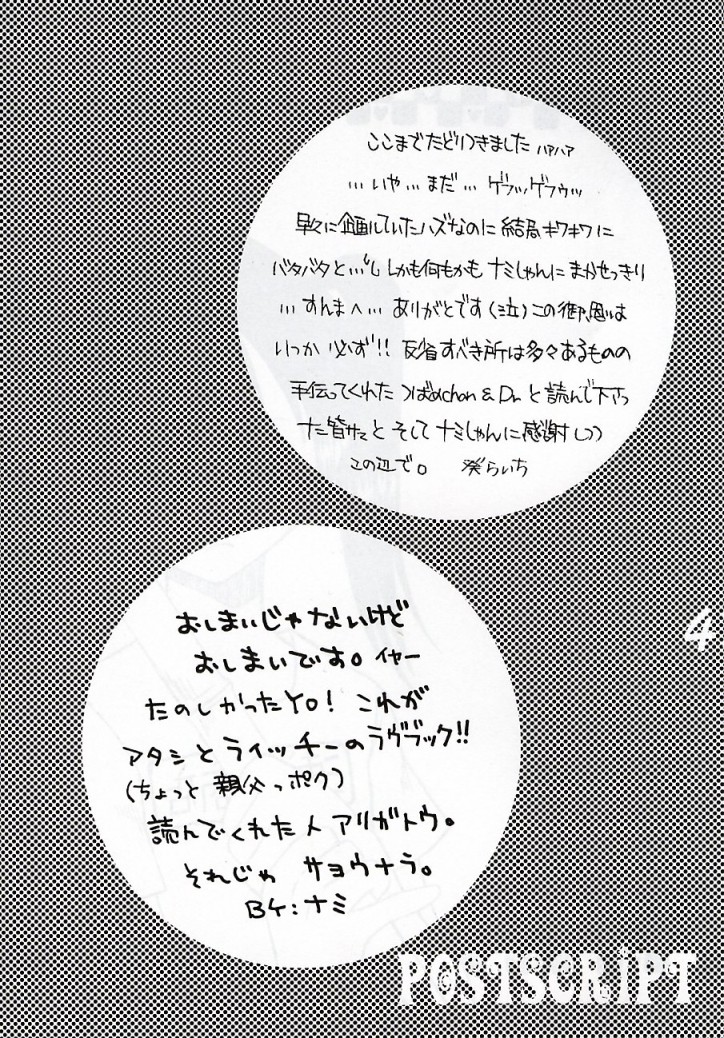 ここまでたどりつきました ハァハァ
…いや…まだ…ゲフッゲフゥッ
早々に企画していたハズなのに結局キワキワに
バタバタと…。しかも何もかもナミしゃんにまかせっきり
…すんまへ…ありがとです(泣)この御恩は
いつか必ず!! 反省すべき所は多々あるものの
手伝ってくれたつばめchan & Dr.と読んで下さっ
た皆サマとそしてナミしゃんに感謝しつつ
この辺で。 葵らいち
おしまいじゃないけど
おしまいです。イヤー
たのしかったYO! これが
アタシとライッチーのラヴブック!!
(ちょっと親父っポク)
読んでくれた人アリガトウ。
それじゃ サヨウナラ。
BY:ナミ
4
POSTSCRiPT